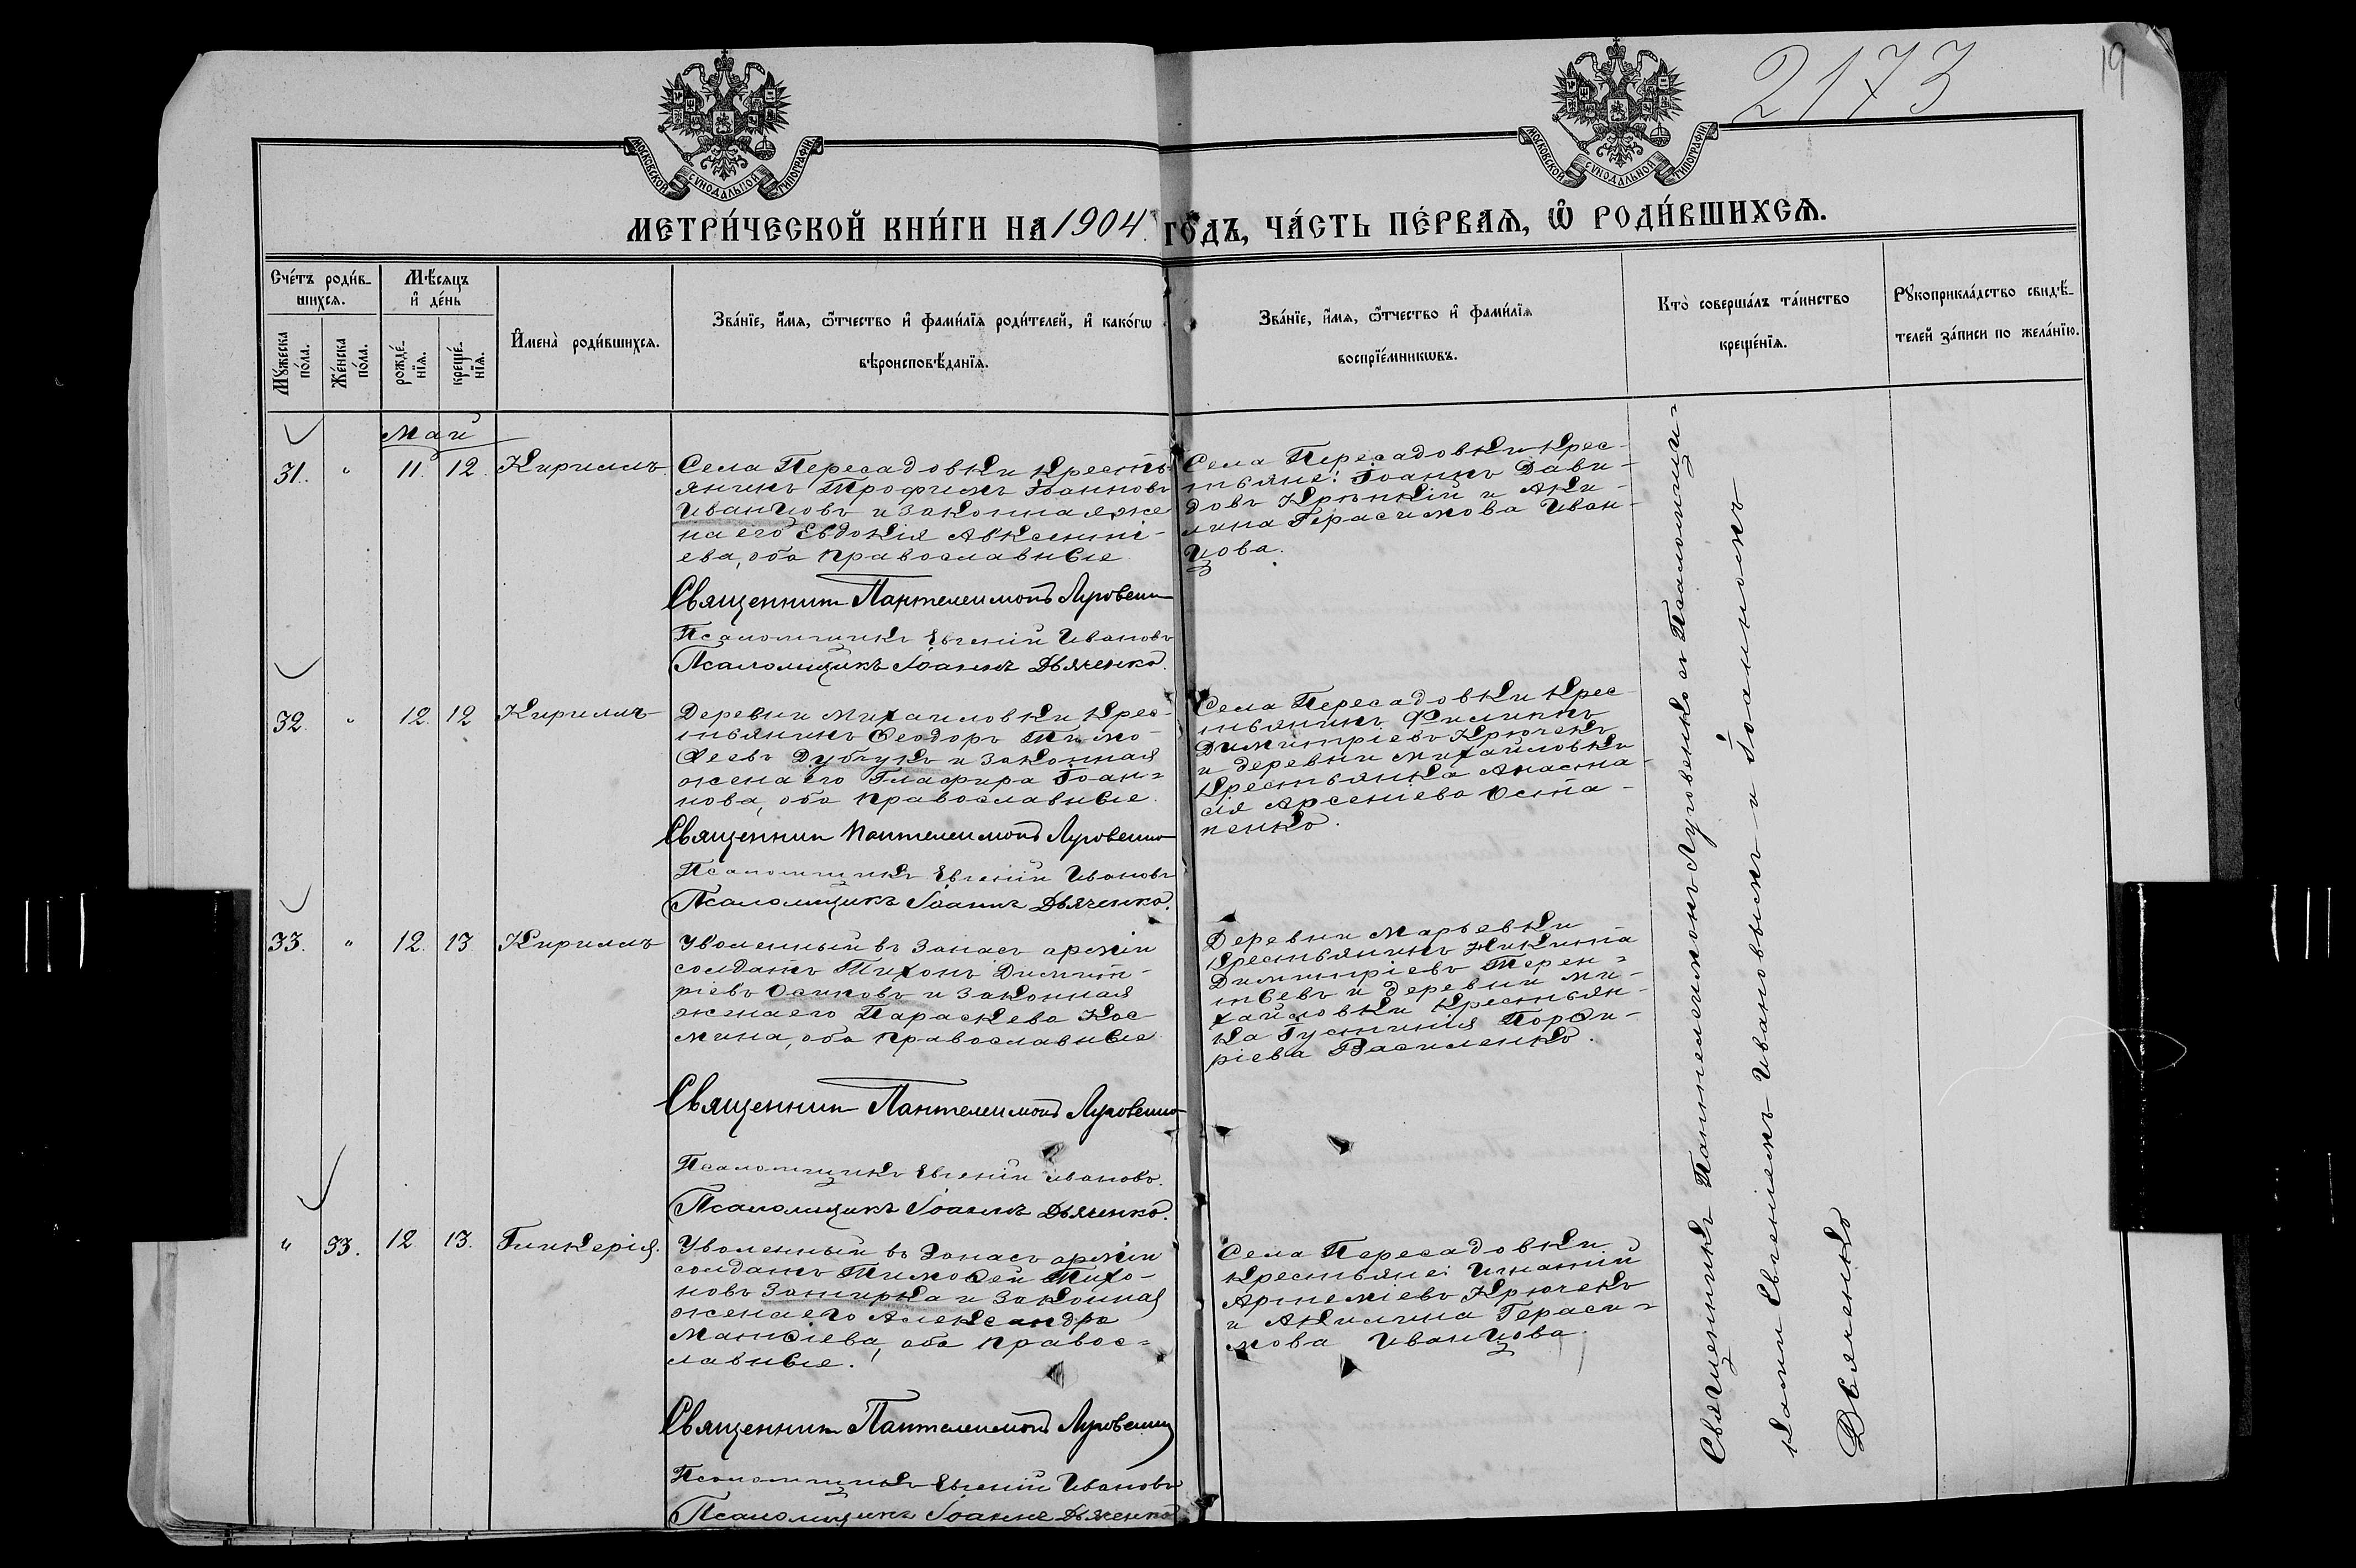 2173
19
МОСКОВСКОЙ СѴНОДАЛЬНОЙ ТИПОГРАФІИ
МОСКОВСКОЙ СѴНОДАЛЬНОЙ ТИПОГРАФІИ
МЕТРИ́ЧЕСКОЙ КНИ́ГИ НА 1904 ГО́ДЪ, ЧА́СТЬ ПЕ́РВАѦ, Ѽ РОДИ́ВШИХСѦ.
Сче́тъ роди́в-
шихсѧ.
Мꙋ́жеска по́ла.
Же́нска по́ла.
Мѣ́сѧцъ и҆ де́нь
рожде́-
нїѧ.
креще́-
нїѧ.
И҆мена̀ роди́вшихсѧ.
Зва́нїе, и҆́мѧ, ѻ҆́тчество и҆ фами́лїѧ роди́телей, и҆ како́гѡ
вѣроисповѣ́данїѧ.
Зва́нїе, и҆́мѧ, ѻ҆́тчество и҆ фами́лїѧ
воспрїе́мникѡвъ.
Кто̀ соверша́лъ та́инство
креще́нїѧ.
Рꙋкоприкла́дство свидѣ́-
телей за́писи по жела́нїю.
Май
31. " 11. 12. Кириллъ
Села Пересадовки кресть-
янинъ Трофимъ Іоанновъ
Иванцовъ и законная же
на его Евдокія Авксенті-
ева, оба православные
Священник Пантелеимонъ Луговенко
Псаломщикъ Евгеній Ивановъ
Псаломщикъ Іоаннъ Дьяченко.
Села Пересадовки крес-
тьяне: Іоаннъ Дави-
довъ Крѣпкій и Аки-
лина Герасимова Иван-
цова.
32. " 12. 12 Кириллъ
Деревни Михаиловки крес-
тьянинъ Ѳеодоръ Тимо-
ѳеевъ Дубчукъ и законная
жена его Глафира Іоан-
нова, оба православные.
Священник Пантелеимонъ Луговенко
Псаломщикъ Евгеній Ивановъ
Псаломщикъ Іоаннъ Дьяченко.
Села Пересадовки крес
тьянинъ Филиппъ
Димитріевъ Крючекъ
и деревни Михайловки
крестьянка Анаста-
сія Арсеніева Оста-
пенко.
33. " 12. 13 Кириллъ
Уволенный въ запасъ арміи
солдатъ Тихонъ Димит-
ріевъ Осиповъ и законная
жена его Параскева Кос
мина, оба православные
Священник Пантелеимонъ Луговенко
Псаломщикъ Евгеній Ивановъ.
Псаломщикъ Іоаннъ Дьяченко.
Деревни Марьевки
крестьянинъ Никита
Димитріевъ Терен-
тьевъ и деревни Ми-
хайловки крестьян-
ка Іустинія Порфи-
ріева Василенко.
" 33. 12 13. Гликерія.
Уволенный въ запасъ арміи
солдатъ Тимоѳей Тихо-
новъ Затирка и законная
жена его Александра
Манѳіева, оба правос-
лавные.
Священник Пантелеимонъ Луговенко
Псаломщикъ Евгеній Ивановъ
Псаломщикъ Іоаннъ Дьяченко
Села Пересадовки
крестьяне: Игнатій
Артеміевъ Крючекъ
и Акилина Гераси-
мова Иванцова.
Священникъ Пантелеимонъ Луговенко съ Псаломщи-
ками Евгеніемъ Ивановымъ и Іоанномъ
Дьяченко